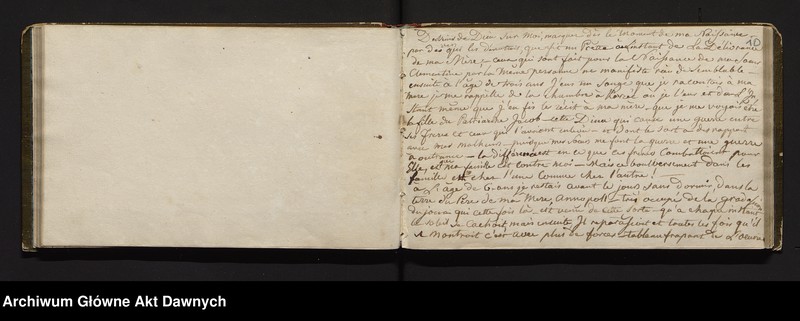 Desseins de Dieu sur moi, marqués dès le moment de ma Naissance
10
par des les que fit un Prêtre à l'instant de la Délivrance
de ma Mère, ceux qui sont fait pour la Naissance de ma Sœur
Clementine par la Même personne ne manifeste rien de Semblable
ensuite à l'âge de trois ans J'eus un Songe que je racontois à ma
mere je me rappelle de la Chambre à où je l'eus et dans l'In
stant même que j'en fis le récit à ma mère, que je me voyois être
la fille du Patriarche Jacob cette Dina qui causa une guerre entre
ses Freres et ceux qui l'avoient et dont le sort a des rapport
avec mes malheurs puisque mes me font la guerre et une guerre
à outrance la différence est en ce que ces freres combattoient pour
Elle, et que ma famille est contre moi Mais ce boulversement dans les
famille est chez l'une comme chez l'autre!
à l'âge de 6 ans je restais avant le jour, sans dormir, dans la
terre du Pere de ma Mere, Annopoll très occupée de la
du jour qui cette fois là, est venu de cette sorte qu'à chaque instant
le Soleil se cachoit, mais ensuite Il reparoissoit et toutes les fois qu'il
se montroit c'est avec plus de forces tableau frapant de l'oeuvre
Archiwum Główne Akt Dawnych